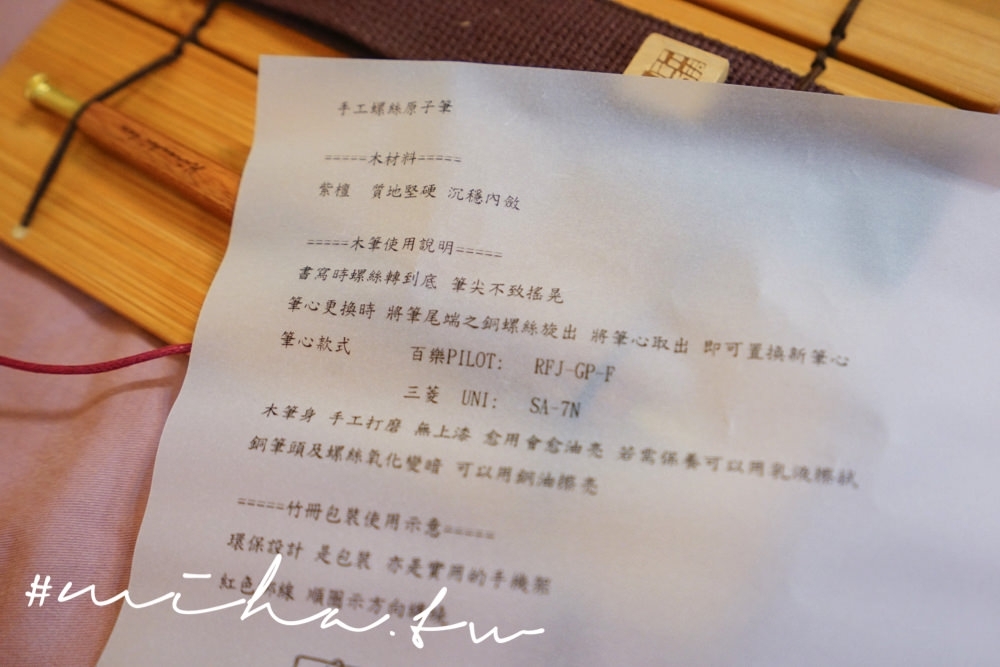 手工螺絲原子筆
=====木材料=====
紫檀 質地堅硬 沉穩內斂
=====木筆使用說明=====
書寫時螺絲轉到底 筆尖不致搖晃
筆心更換時 將筆尾端之銅螺絲旋出 將筆心取出 即可置換新筆心
筆心款式 百樂PILOT: RFJ-GP-F
三菱 UNI: SA-7N
木筆身 手工打磨 無上漆 愈用會愈油亮 若需保養可以用乳液擦拭
銅筆頭及螺絲氧化變暗 可以用銅油擦亮
=====竹冊包裝使用示意=====
環保設計 是包裝 亦是實用的手機架
紅色 線 順圖示方向
#miha.tw